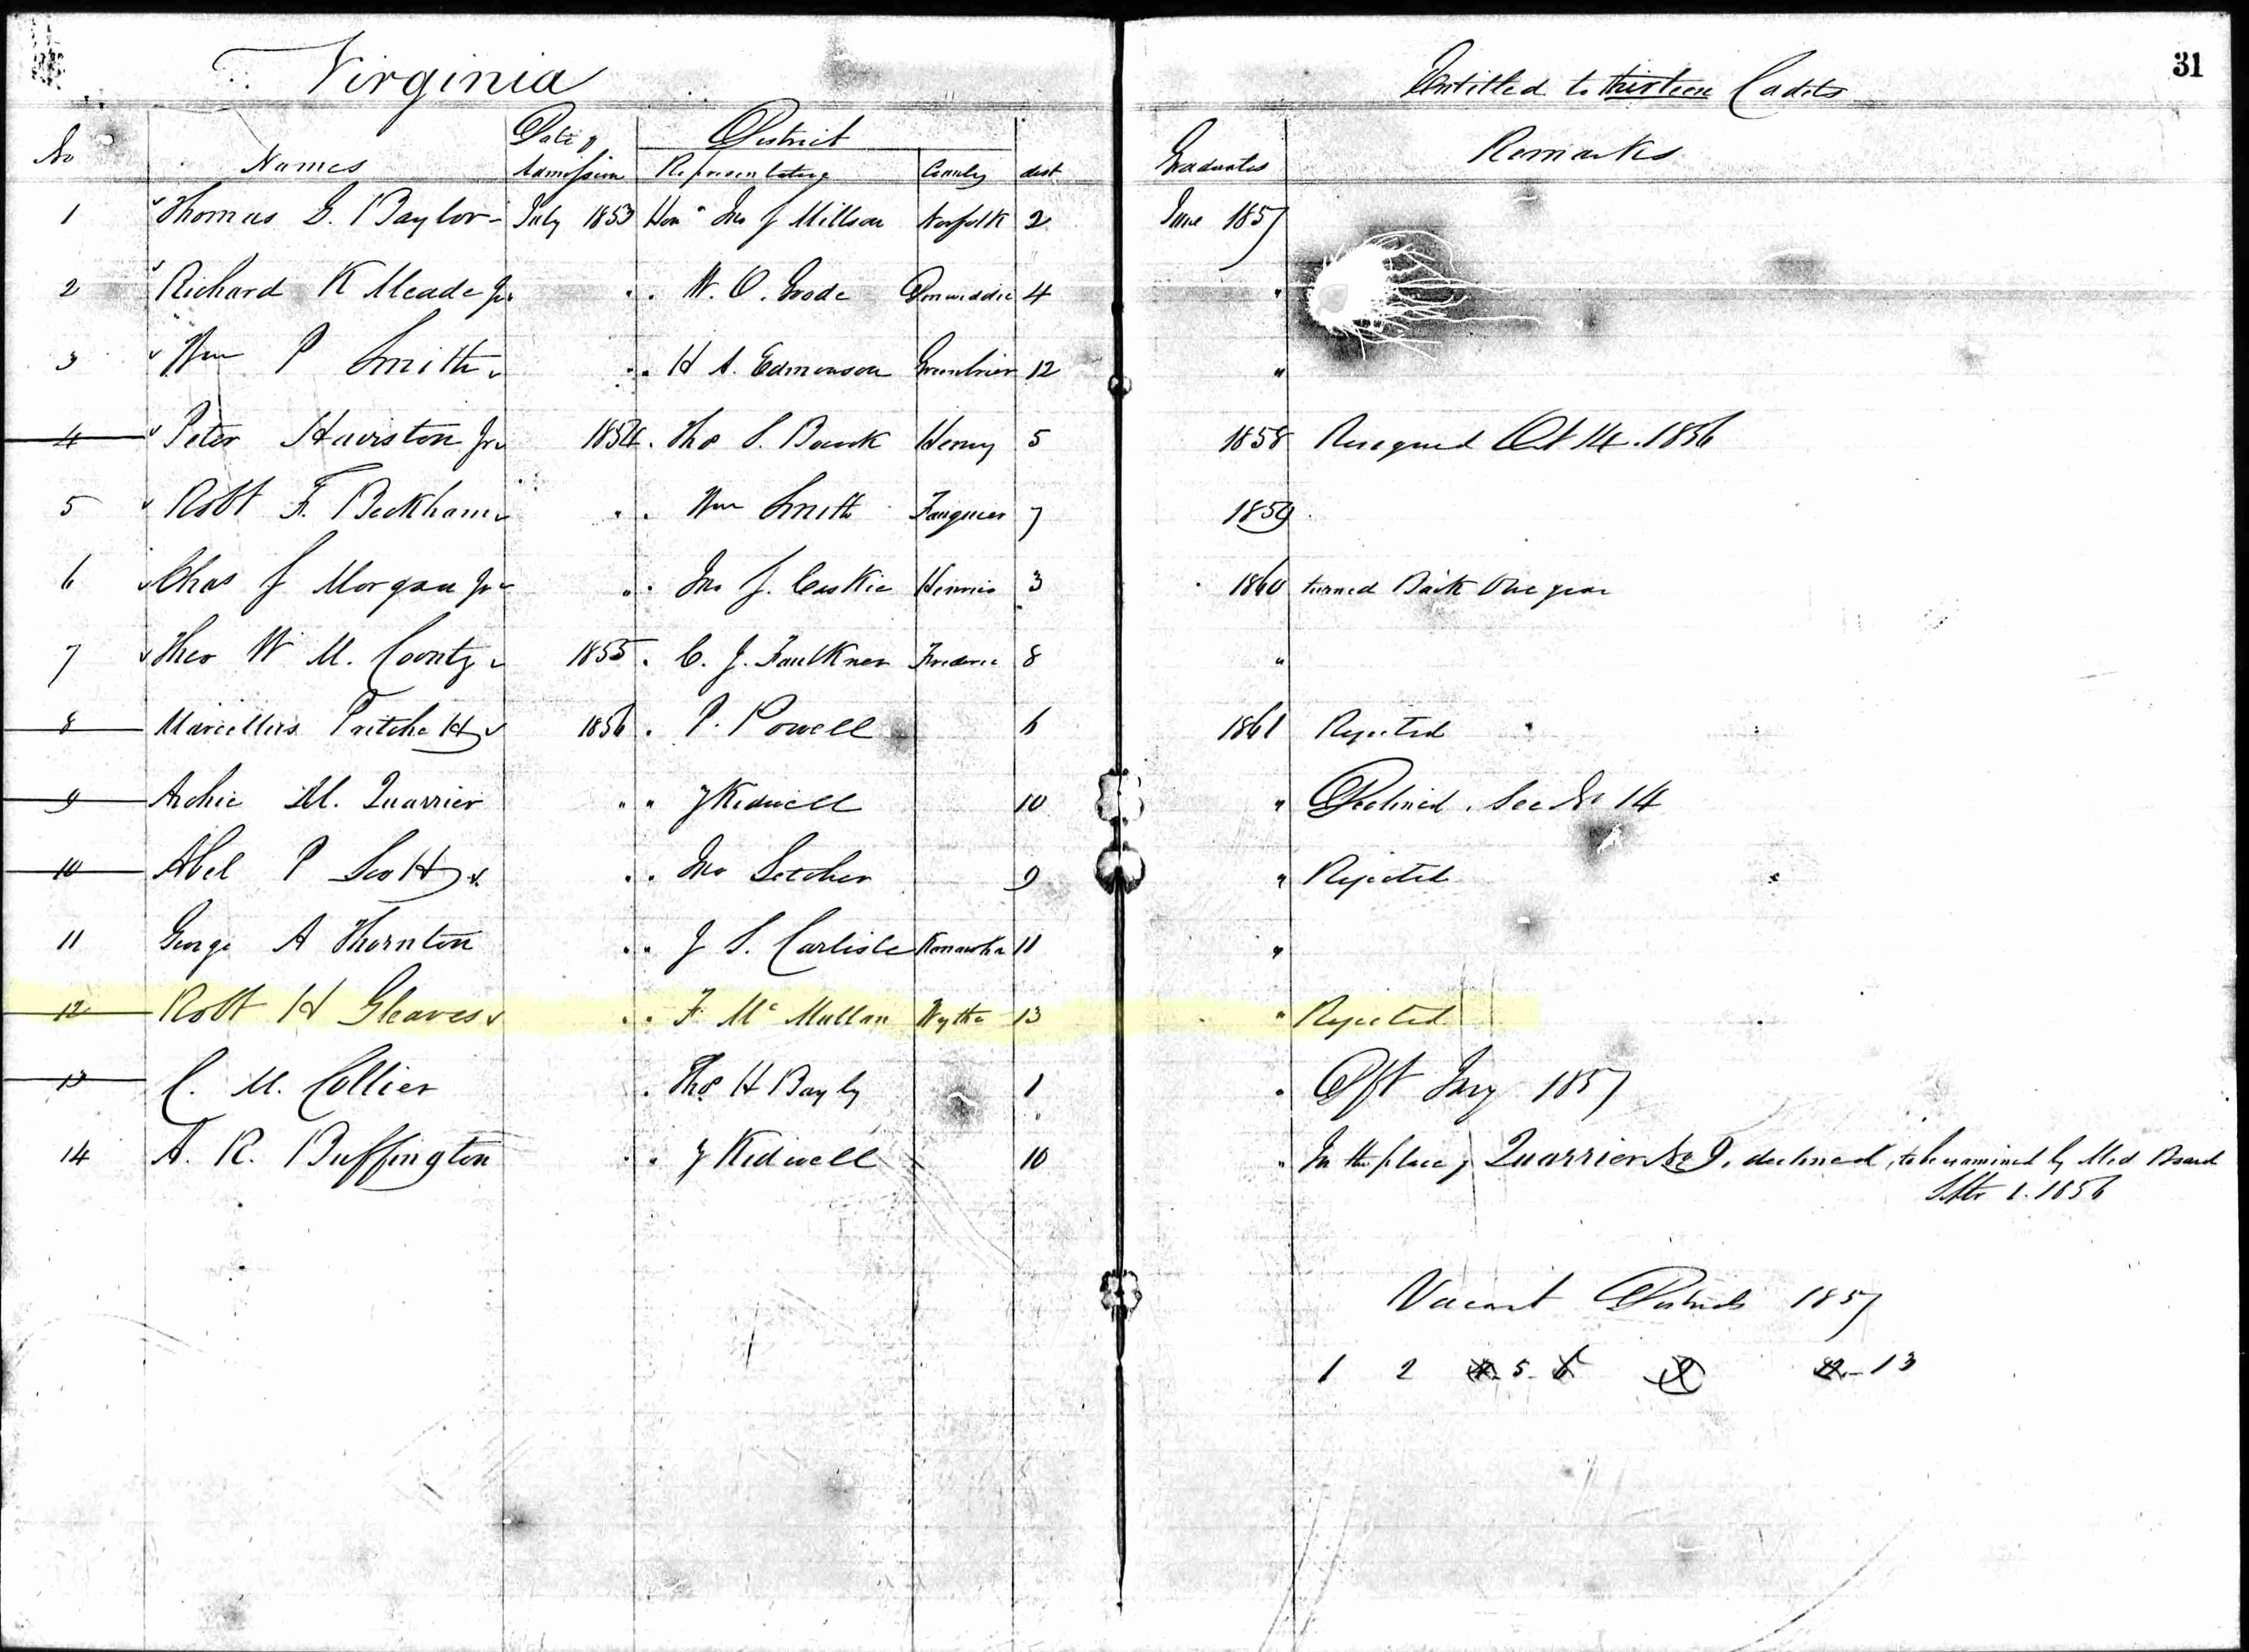 31
Virginia Entitled to thirteen Cadets
No Names Date of Admission District Representative County dist Graduates Remarks
1 Thomas G. Baylor July 1853 Hon Jno J Millson Norfolk 2 June 1857
2 Richard K Meade Jr " . W. O. Goode Dinwiddie 4 "
3 Wm P Smith " . H A. Edmonson Greenbrier 12 "
4 Peter Hairston Jr 1854 . Tho S. Bocock Henry 5 1858 Resigned Oct 14. 1856
5 Robt F. Beckham " . Wm Smith Fauquier 7 1859
6 Chas J Morgan Jr " . Jno J. Caskie Henrico 3 1860 turned Back One year
7 Theo W M. Coontz 1855 . C. J. Faulkner Frederic 8 "
8 Marcellus Pritchett 1856 . P. Powell 6 1861 Rejected
9 Archie M. Quarrier " " Z Kidwell 10 " Declined . See No 14
10 Abel P Scott " . Jno Letcher 9 " Rejected
11 George A Thornton " " J S. Carlisle Kanawha 11 "
12 Robt H Gleaves " " F. Mc Mullan Wythe 13 " Rejected
13 C. M. Collier . Tho H Bayly 1 " Apt Jny 1857
14 A. R. Buffington " " Z Kidwell 10 " In the place of Quarrier No 9. declined, to be examined by Med Board
Septr 1. 1856
Vacant Districts 1857
1 2 4 5 6 9 12 - 13